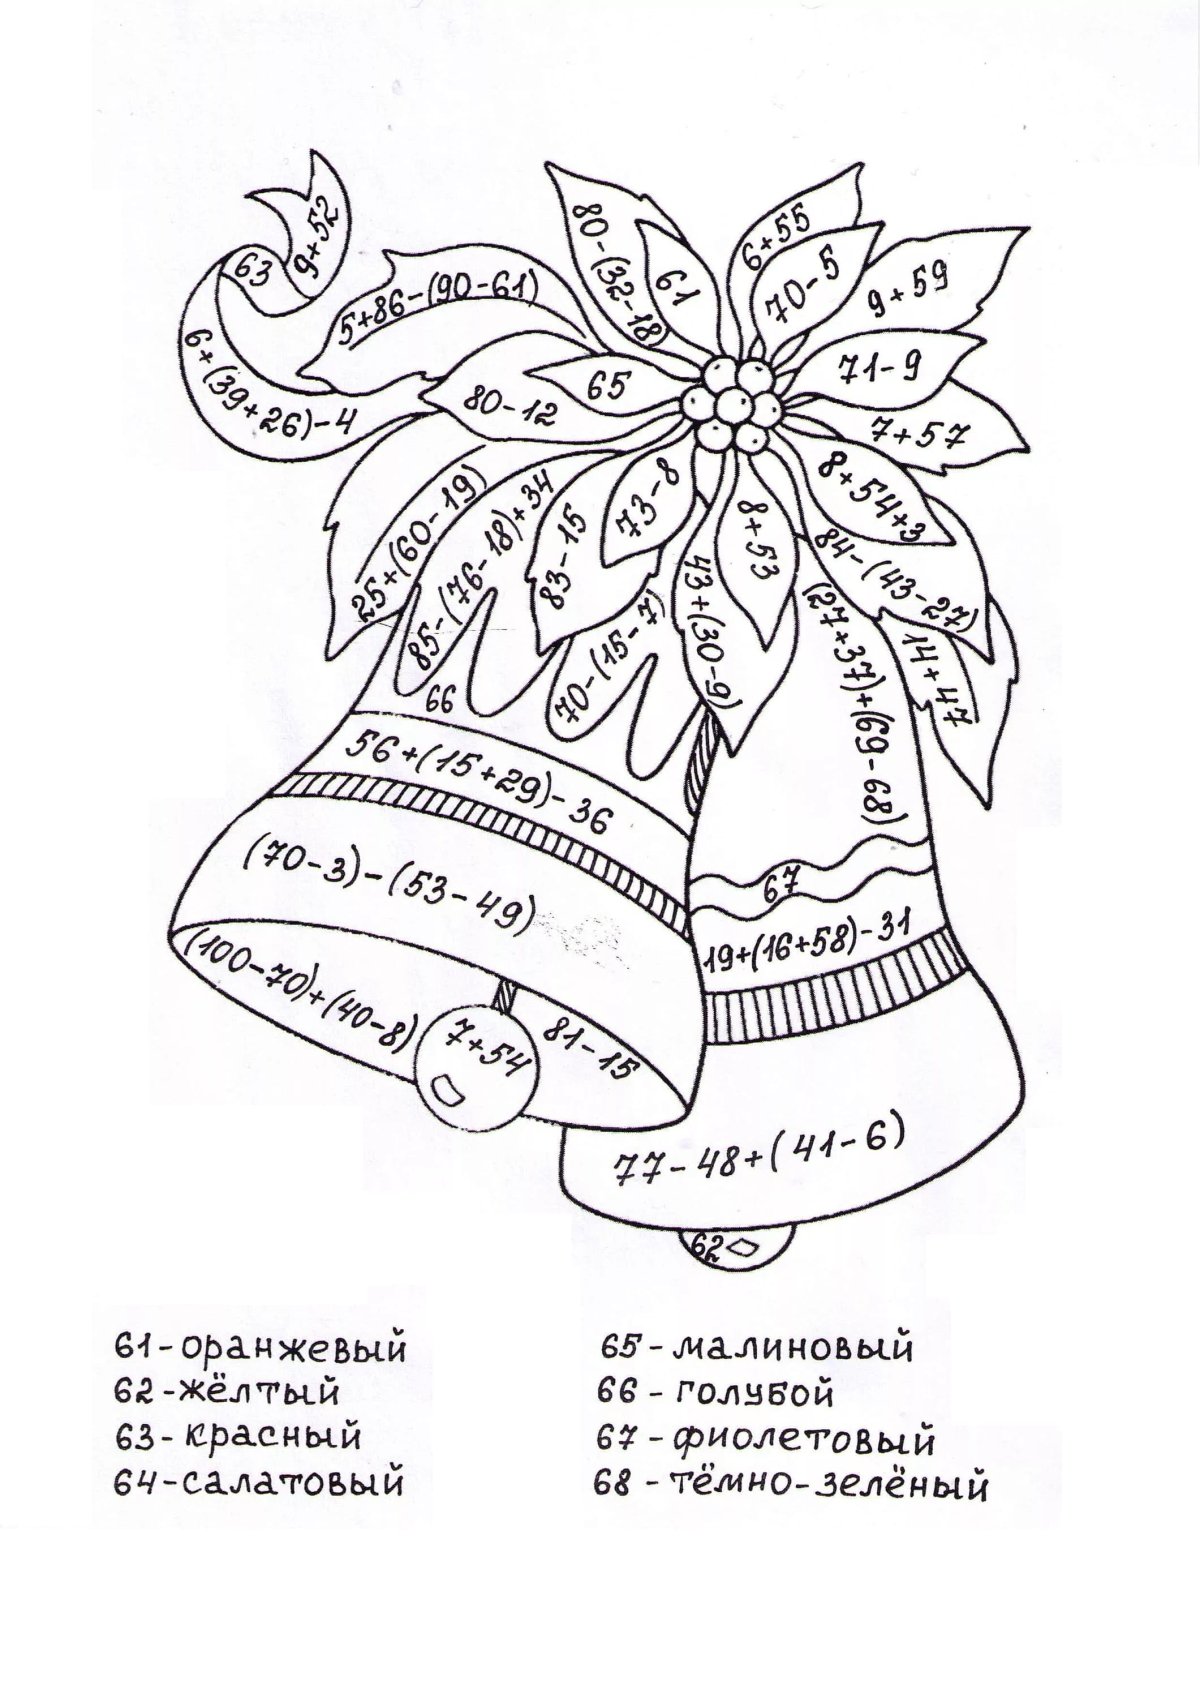 9+52
63
6+(39+26)-4
5+86-(90-61)
80-(32-18)
61
6+55
70-5
9+59
71-9
65
80-12
7+57
8+54+3
84-(43-27)
14+47
73-8
8+53
43+(30-9)
83-15
25+(60-19)
85-(76-18)+34
70-(15-7)
(27+37)+(69-68)
66
56+(15+29)-36
(70-3)-(53-49)
67
19+(16+58)-31
(100-70)+(40-8)
7+54
81-15
77-48+(41-6)
62
61-оранжевый
62-жёлтый
63-красный
64-салатовый
65-малиновый
66-голубой
67-фиолетовый
68-тёмно-зелёный